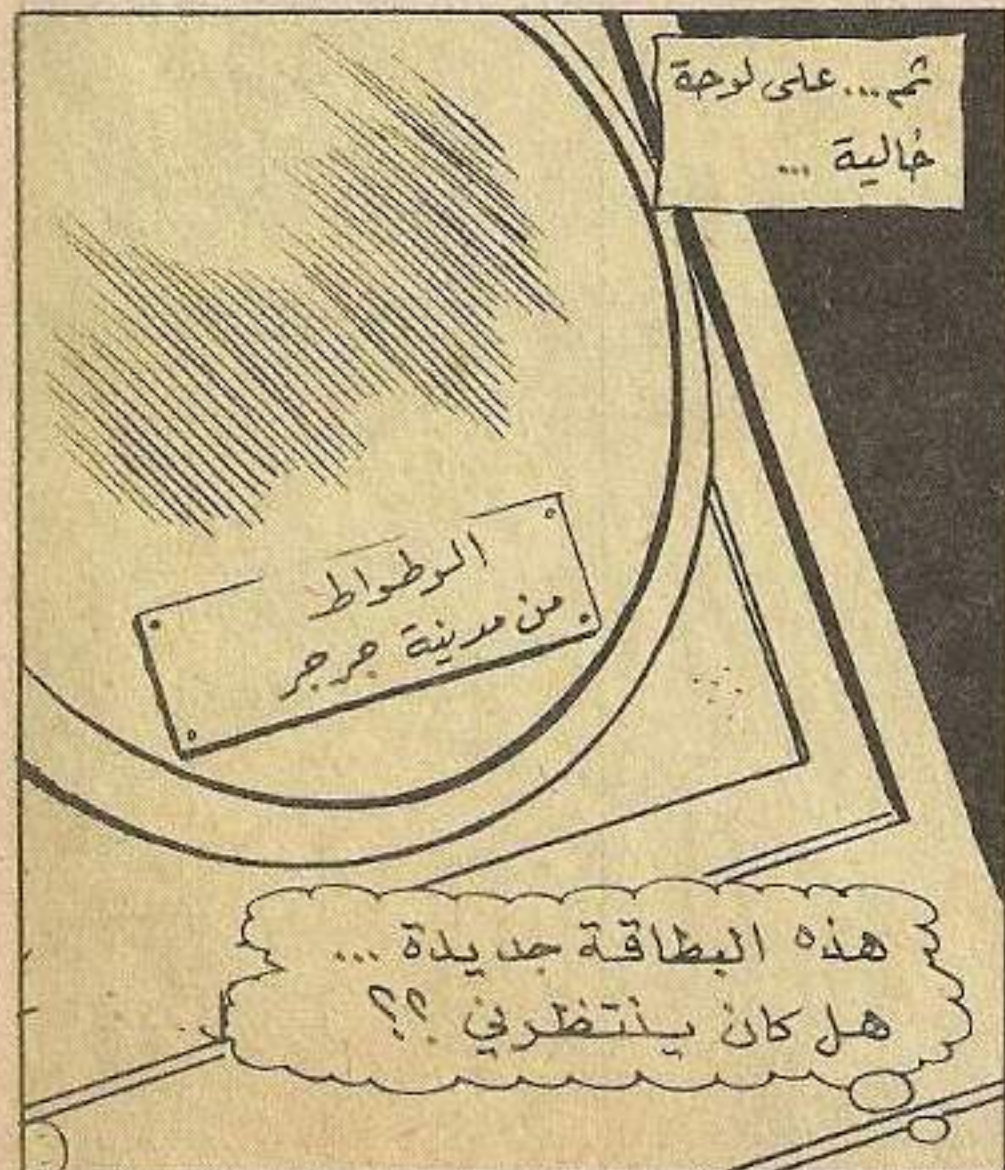 ثم... على لوحة
خالية ...
الوطواط
من مدينة جرجر
هذه البطاقة جديدة ...
هل كان ينتظرني ؟؟